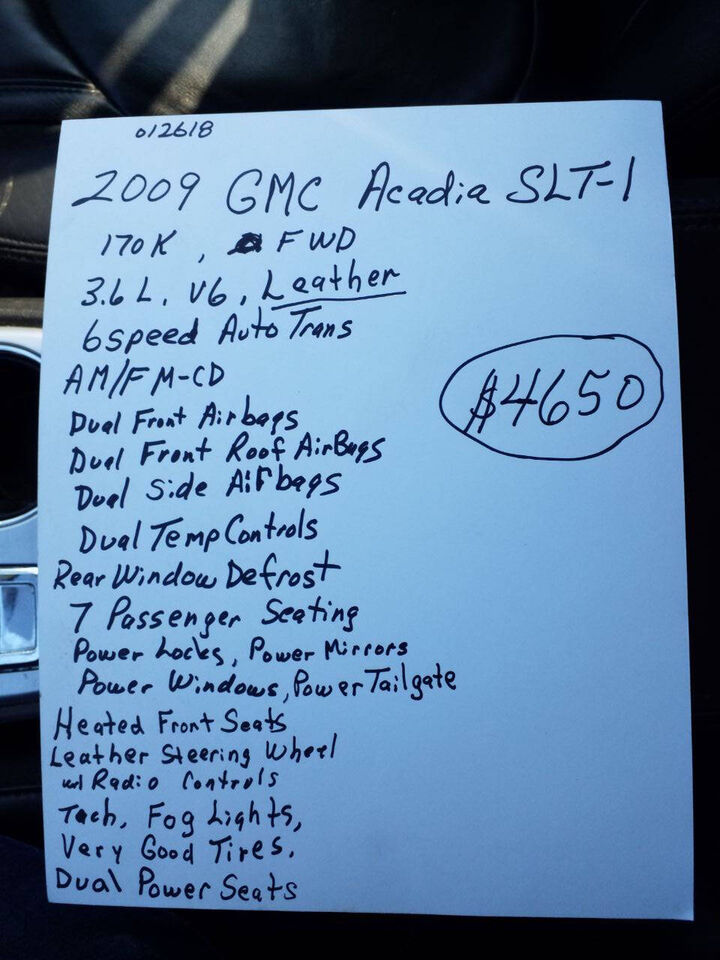 012618
2009 GMC Acadia SLT-1
170K, FWD
3.6L. V6, Leather
6speed Auto Trans
AM/FM-CD
$4650
Dual Front Airbags
Dual Front Roof AirBags
Dual Side Airbags
Dual Temp Controls
Rear Window Defrost
7 Passenger Seating
Power Locks, Power Mirrors
Power Windows, Power Tailgate
Heated Front Seats
Leather Steering Wheel
w/ Radio Controls
Tach, Fog Lights,
Very Good Tires.
Dual Power Seats